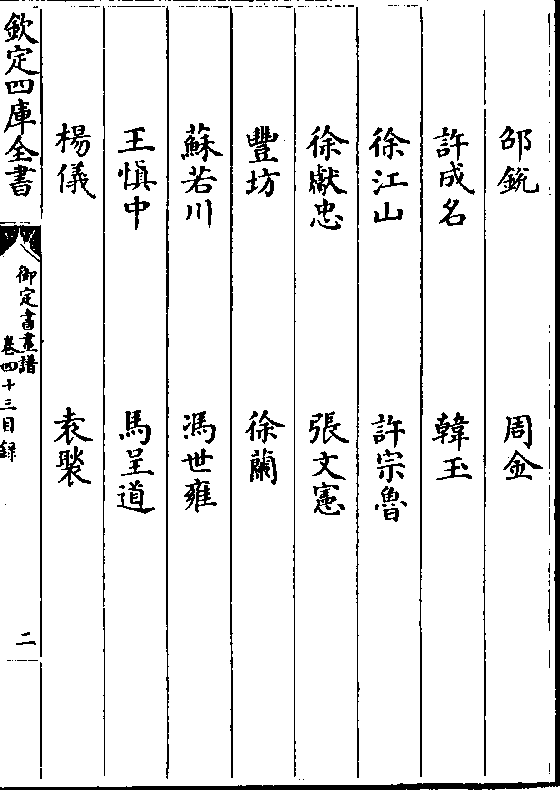 邵銳　周金
許成名　韓玉
徐江山　許宗魯
徐獻忠　張文憲
豐坊　徐蘭
蘇若川　馮世雍
王慎中　馬呈道
楊儀　袁褧
欽定四庫全書
御定書畫譜
卷四十三目錄
二